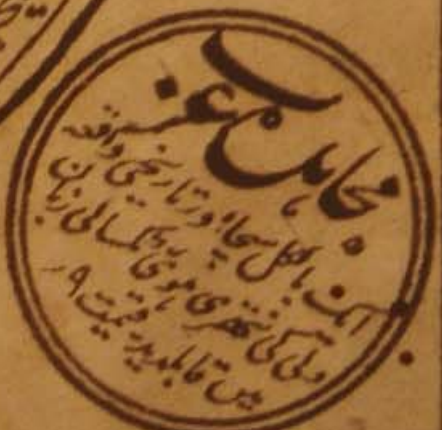 مجاہد عرب
ایک بالکل سچا اور تاریخی واقعہ
دلی کی نتھری ہوئی ٹکسالی زبان
میں قابلدید۔ قیمت ۹؍